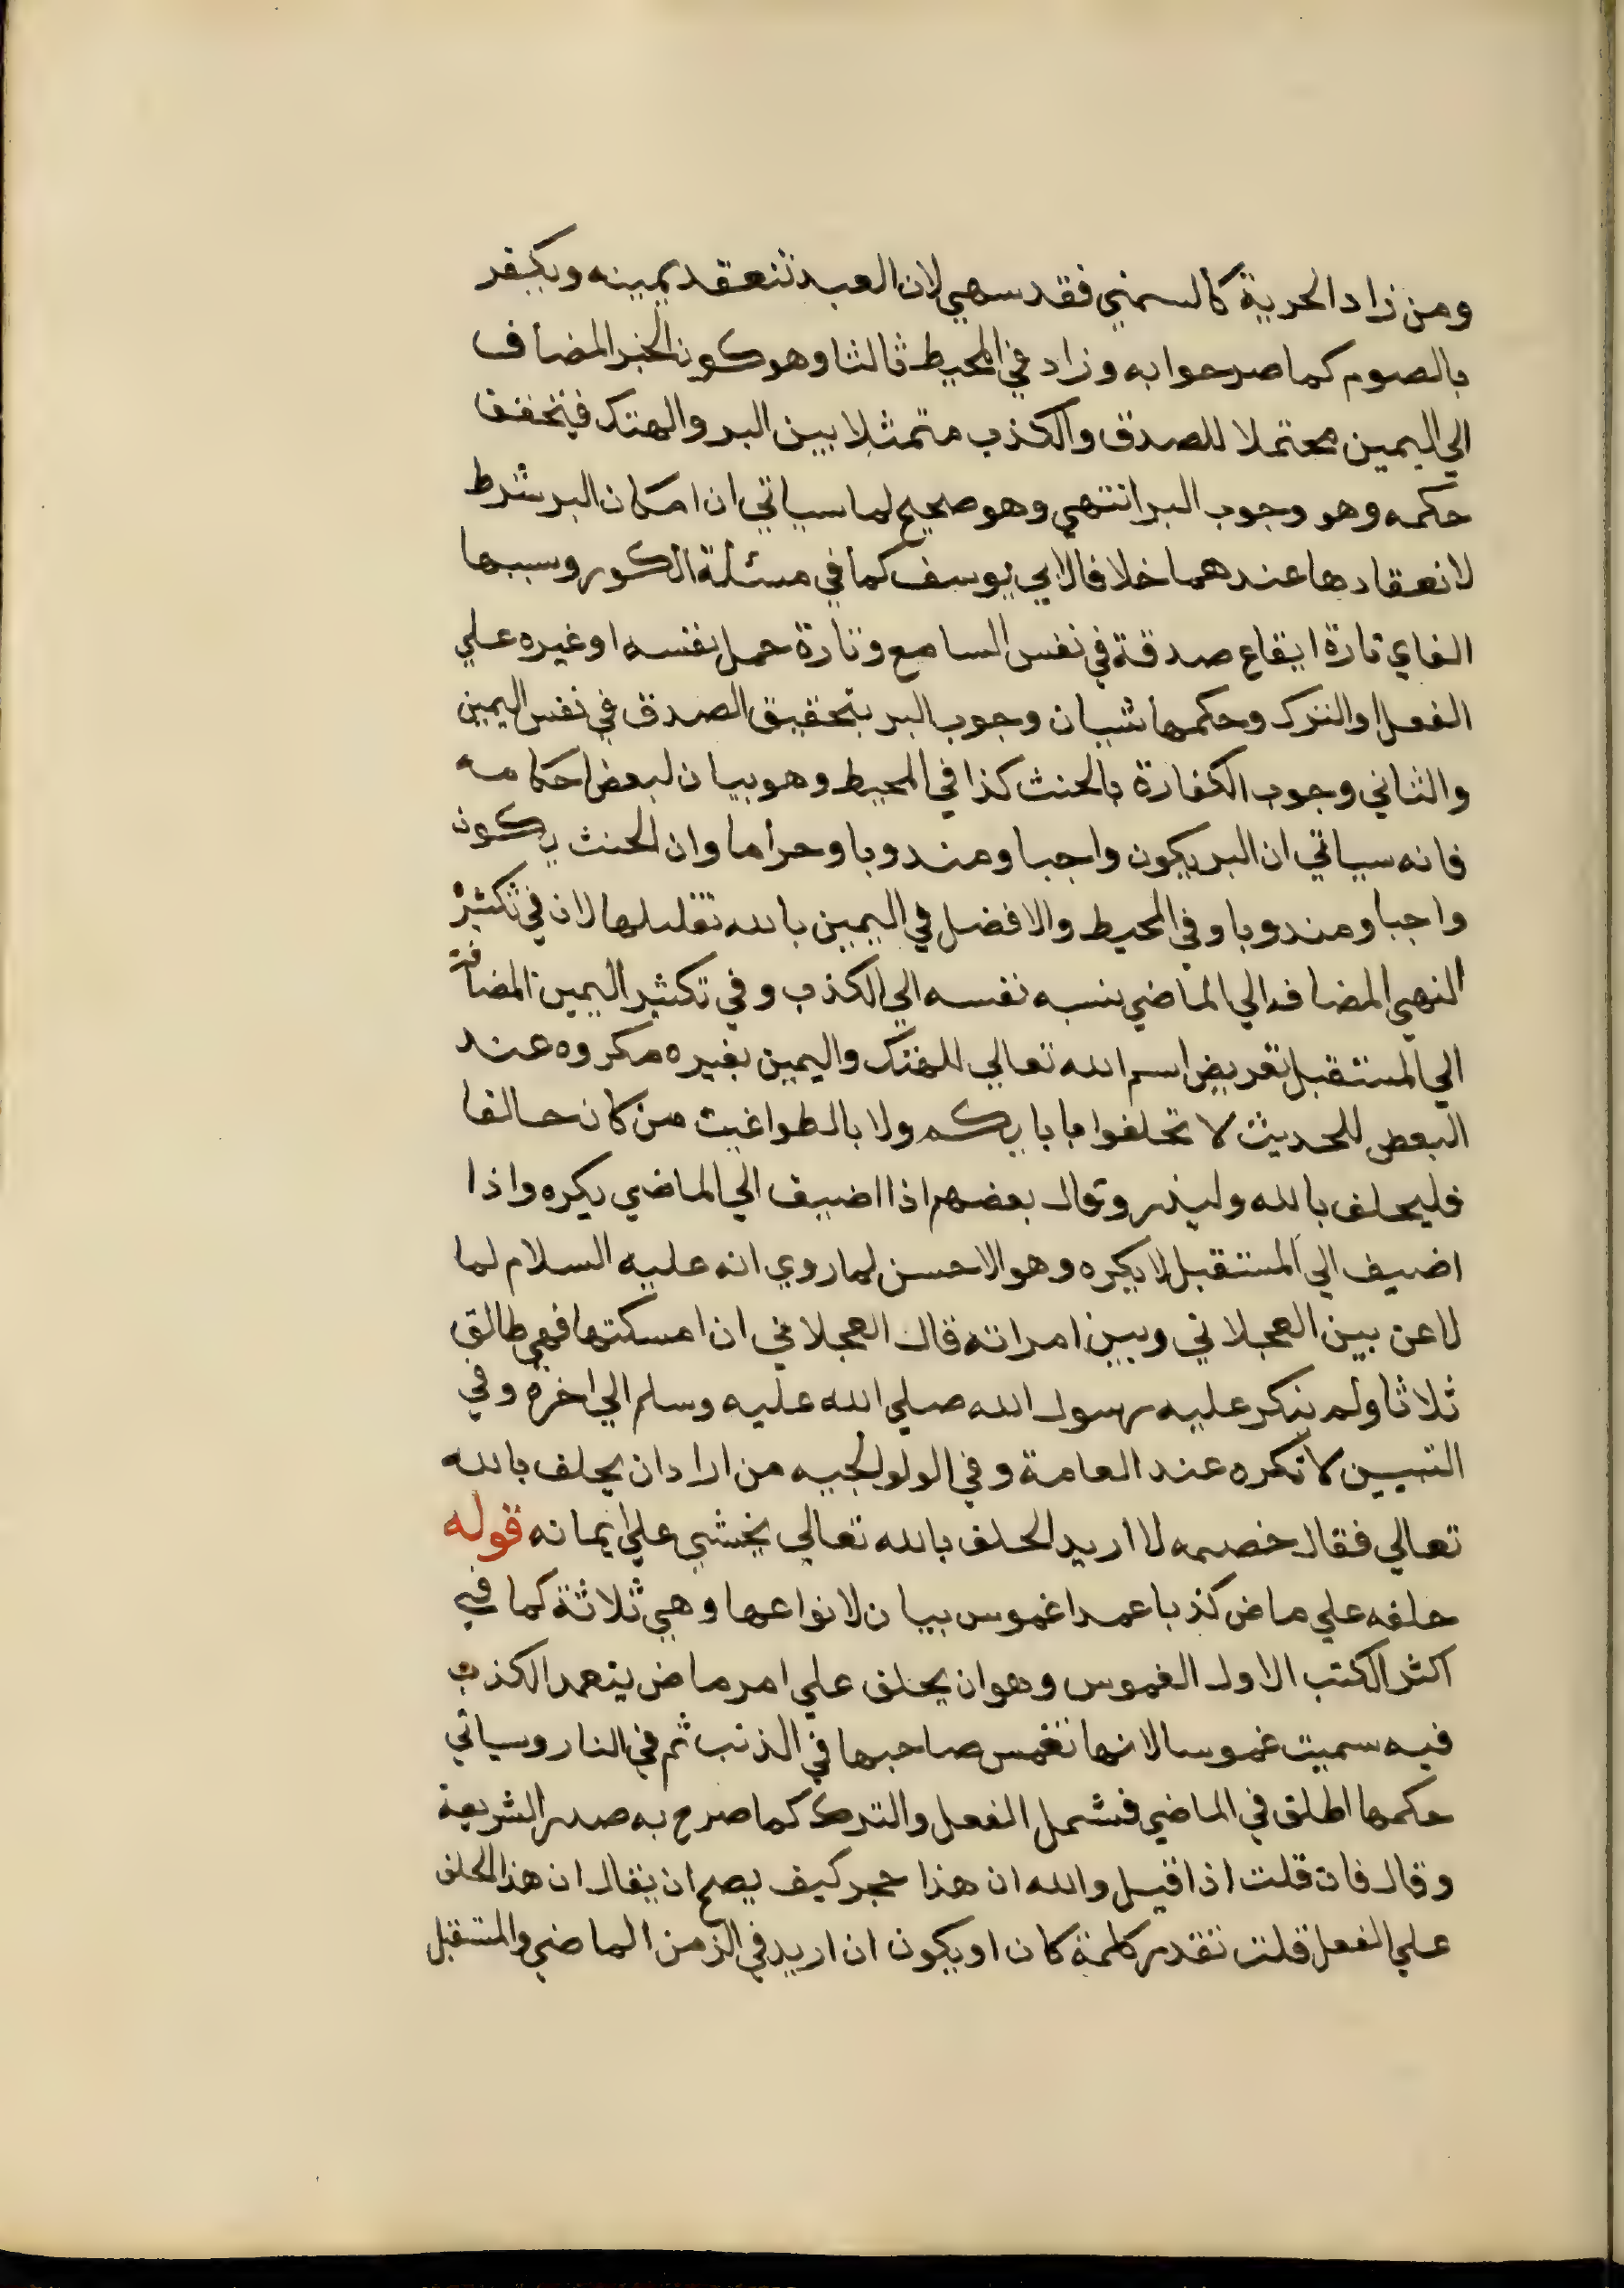 ومن زاد الحرية كالسمني فقد سهي لان العبد تنعقد يمينه ويكفر
بالصوم كما صرحوا به وزاد في المحيط ثالثا وهو كون الخبر المضاف
الي اليمين محتملا للصدق والكذب متمثلا بين البر والهتك فيتحقق
حكمه وهو وجوب البر انتهي وهو صحيح لما سياتي ان امكان البر شرط
لانعقادها عندهما خلافا لابي يوسف كما في مسئلة الكور وسببها
الغاي تارة ايقاع صدقة في نفس السامع وتارة حمل نفسه او غيره علي
الفعل او الترك وحكمها شيان وجوب البر بتحقيق الصدق في نفس اليمين
والثاني وجوب الكفارة بالحنث كذا في المحيط وهو بيان لبعض احكامه
فانه سياتي ان البر يكون واجبا ومندوبا وحراما وان الحنث يكون
واجبا ومندوبا وفي المحيط والافضل في اليمين بالله تقليلها لان في تكثير
النهي المضاف الي الماضي ينسبه نفسه الي الكذب وفي تكثير اليمين المضافة
الي المستقبل تعريض اسم الله تعالي للهتك واليمين بغيره مكروه عند
البعض للحديث لا تحلفوا بابايكم ولا بالطواغيت من كان حالفا
فليحلف بالله وليذر وقال بعضهم اذا اضيف الي الماضي يكره واذا
اضيف الي المستقبل لا يكره وهو الاحسن لما روي انه عليه السلام لما
لاعن بين العجلاني وبين امراته قال العجلاني ان امسكتها فهي طالق
ثلاثا ولم ينكر عليه رسول الله صلي الله عليه وسلم الي اخره وفي
التبيين لا تكره عند العامة وفي الولوالجيه من اراد ان يحلف بالله
تعالي فقال خصمه لا اريد الحلف بالله تعالي يخشي علي ايمانه قوله
حلفه علي ماض كذبا عمدا غموس بيان لانواعها وهي ثلاثة كما في
اكثر الكتب الاول الغموس وهو ان يحلف علي امر ماض يتعمد الكذب
فيه سميت غموسا لانها تغمس صاحبها في الذنب ثم في النار وسياتي
حكمها اطلق في الماضي فشمل الفعل والترك كما صرح به صدر الشريعة
وقال فان قلت اذا قيل والله ان هذا حجر كيف يصح ان يقال ان هذا الحلف
علي الفعل قلت تقدر كلمة كان او يكون ان اريد في الزمن الماضي والمستقبل